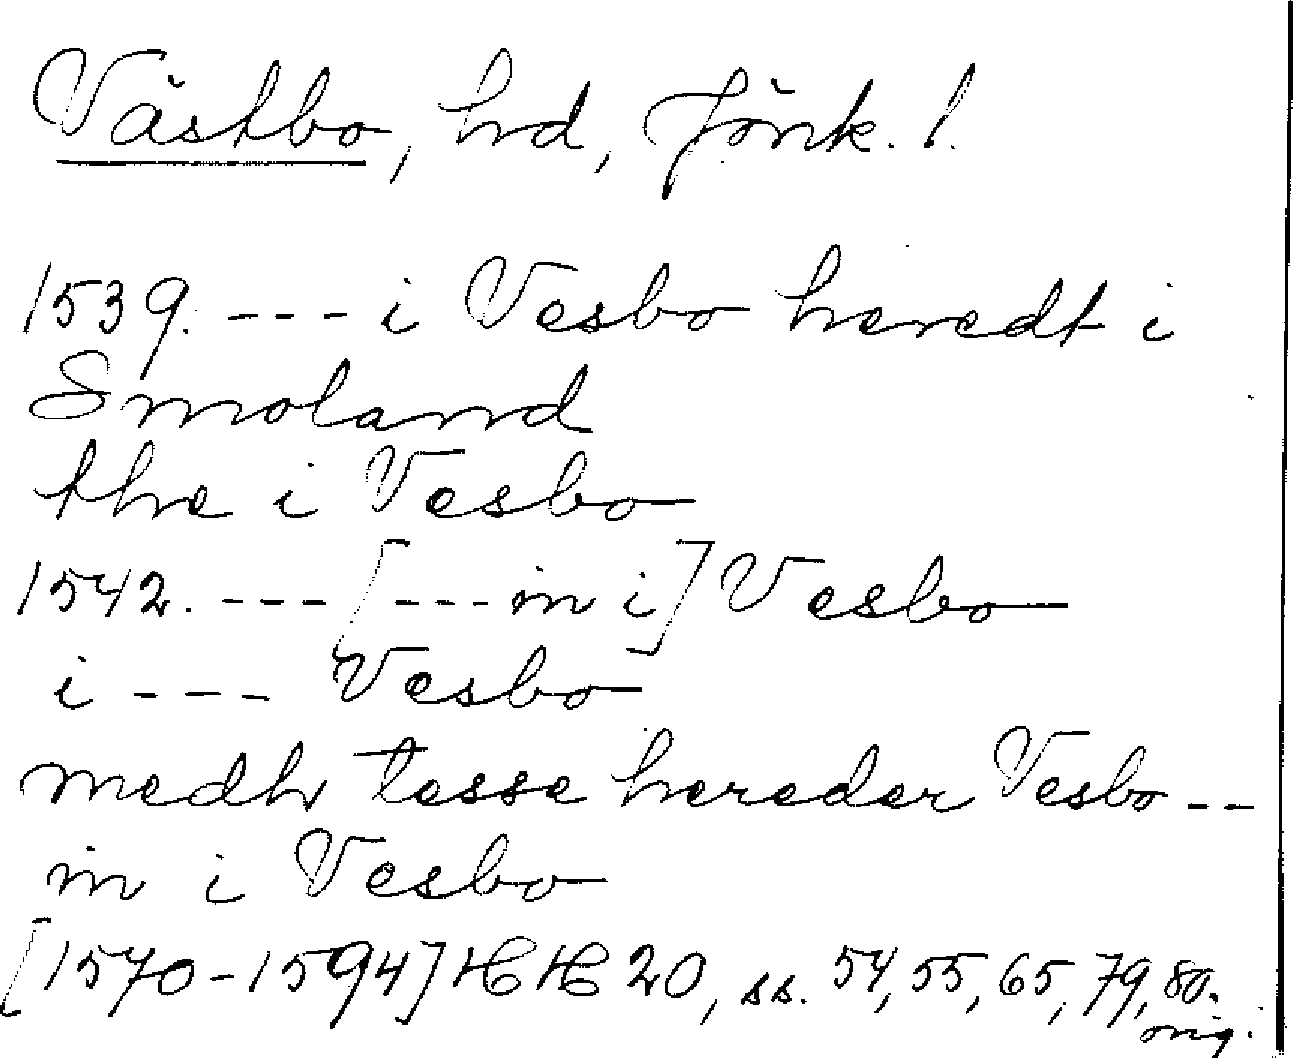 Västbo, hd, Jönk. l.
1539. --- i Vesbo heredt i
Smoland
the i Vesbo
1542. --- [--- in i] Vesbo
i --- Vesbo
medh tesse hereder Vesbo --
in i Vesbo
[1570-1594] HH 20, ss. 54, 55, 65, 79, 80.
orig.